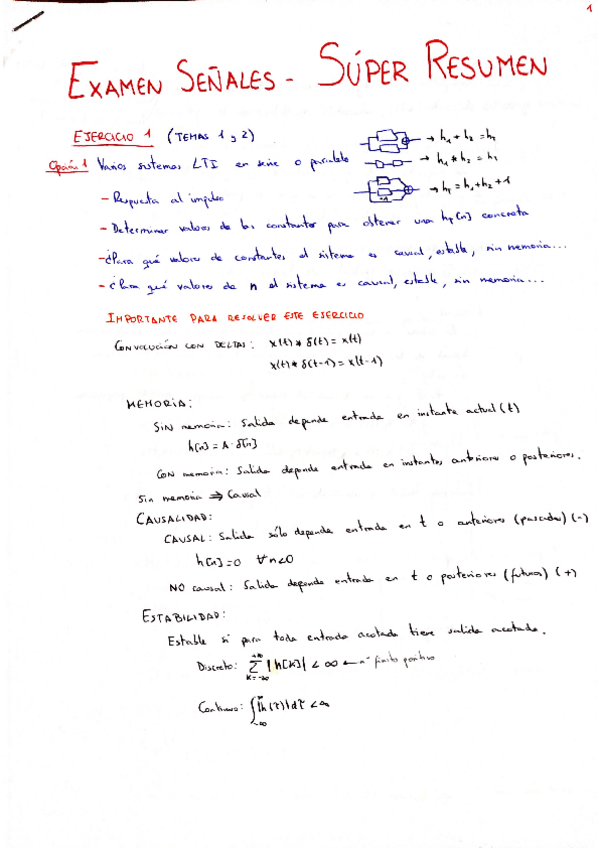 1
EXAMEN SEÑALES - SÚPER RESUMEN
EJERCICIO 1 (TEMAS 1 y 2)
→ h₁ + h₂ = hT
Opción 1 Varios sistemas LTI en serie o paralelo
→ h₁ * h₂ = hT
→ hT = h₁ + h₂ + 1
- Respuesta al impulso
- Determinar valores de las constantes para obtener una hT[n] concreta
- ¿Para qué valores de constantes el sistema es causal, estable, sin memoria...
- ¿Para qué valores de n el sistema es causal, estable, sin memoria...
IMPORTANTE PARA RESOLVER ESTE EJERCICIO
CONVOLUCIÓN CON DELTAS: x(t) * δ(t) = x(t)
x(t) * δ(t-1) = x(t-1)
MEMORIA:
SIN memoria: Salida depende entrada en instante actual (t)
h[n] = A · δ[n]
CON memoria: Salida depende entrada en instantes anteriores o posteriores.
Sin memoria ⇒ Causal
CAUSALIDAD:
CAUSAL: Salida sólo depende entrada en t o anteriores (pasadas) (-)
h[n] = 0 ∀n<0
NO causal: Salida depende entrada en t o posteriores (futura) (+)
ESTABILIDAD:
Estable si para toda entrada acotada tiene salida acotada.
Discreto: ∑ k=-∞ +∞ |h[k]| < ∞ ← nº finito positivo
Continuo: ∫ -∞ ∞ |h(τ)| dτ < ∞